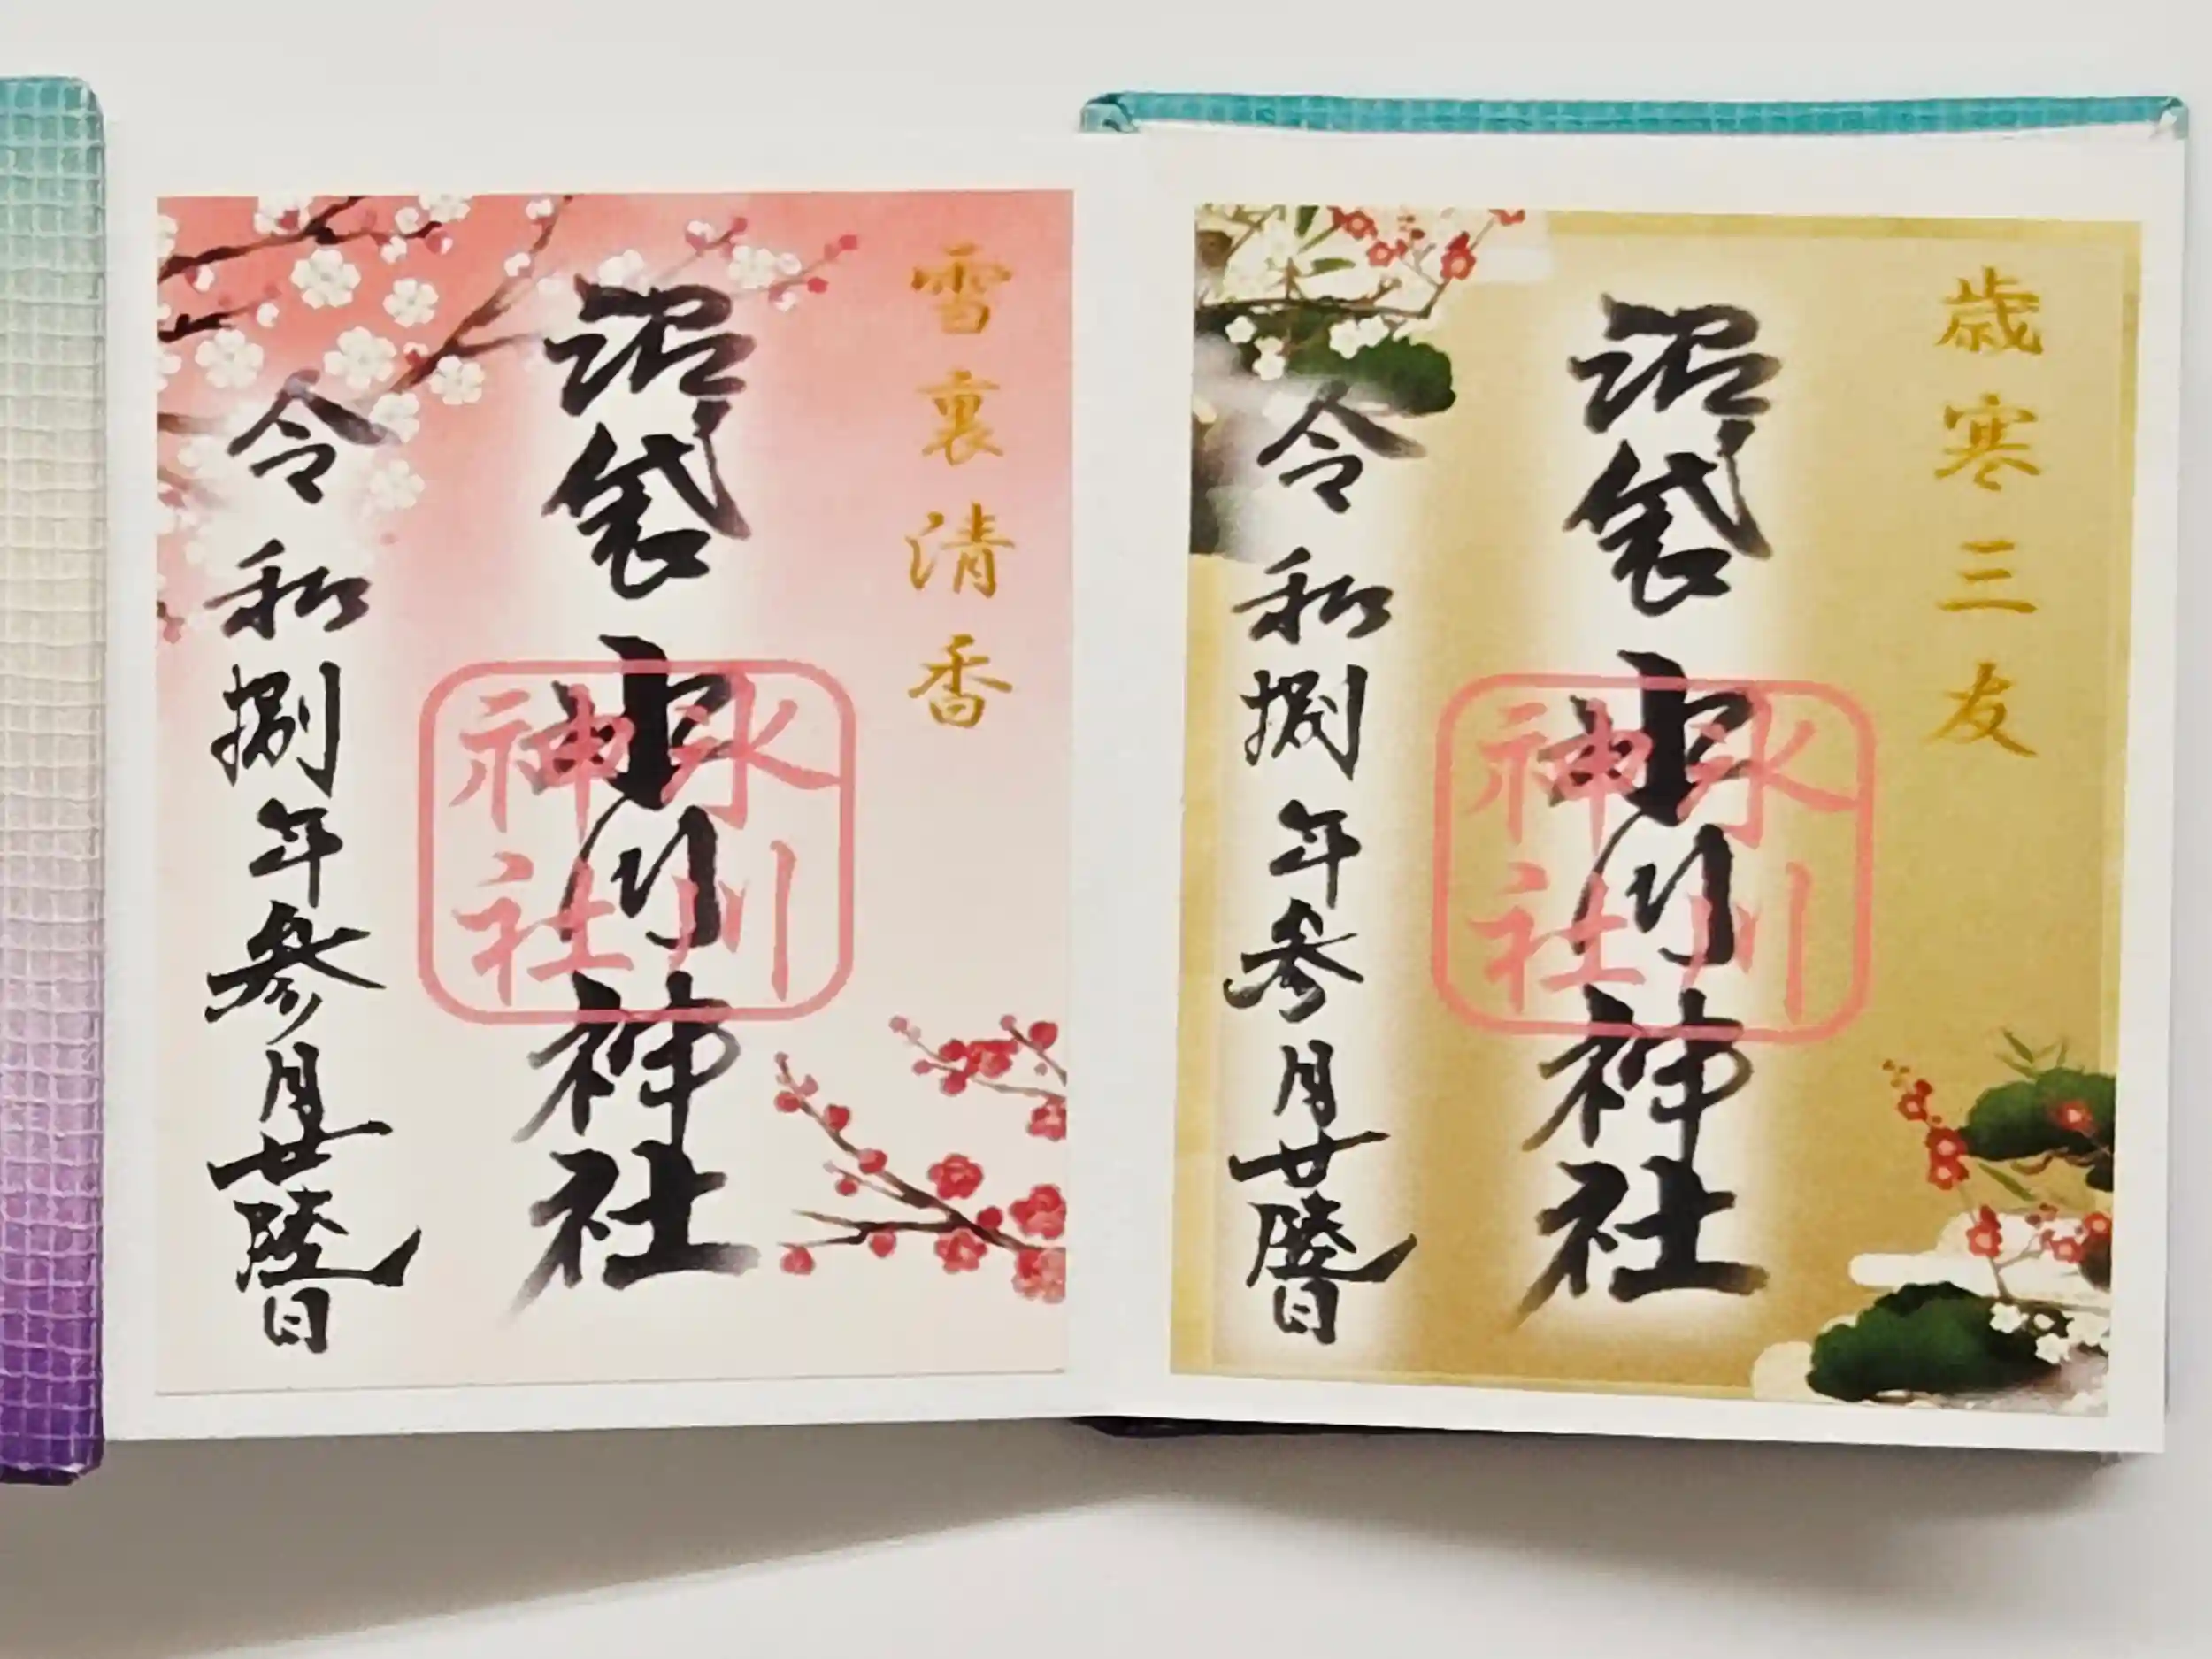 雪裏清香
沼袋氷川神社
氷川
神社
令和捌年参月廿陸日
歳寒三友
沼袋氷川神社
氷川
神社
令和捌年参月廿陸日